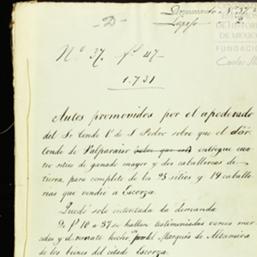 Documento Nº 37
Legajo 2
— D —
Nº 37. fs 47
1.731
Autos promovidos por el apoderado
del Sr. Conde Vº de S. Pedro sobre que el
Conde de Valparaiso entregue cua
tro sitios de ganado mayor y dos caballerias de
tierra, para completo de los 23 sitios y 19 caballe
rias que vendió a Escorza.
Quedó solo intentada la demanda.
De fs 10 a 37 se hallan testimoniadas varias mer
cedes y el remate hecho por el Marqués de Altamira
de los bienes del citado Escorza.
DE MÉXICO
FUNDACIÓN